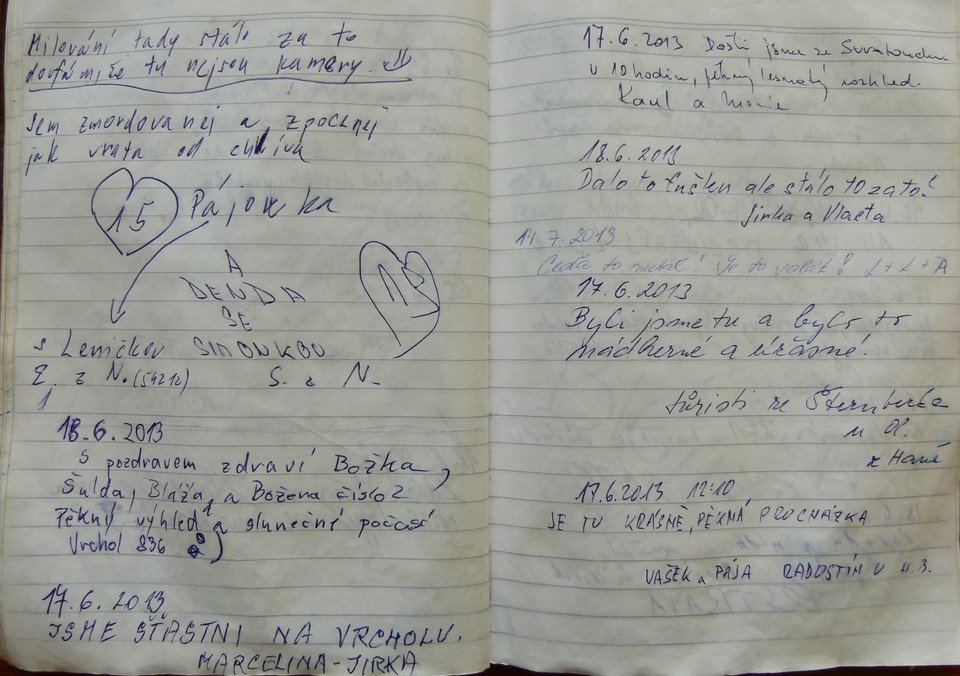 Milování tady stálo za to
doufám, že tu nejsou kamery.
Jsem zmordovanej a zpocenej
jak vrata od chlíva
15 Pájovka
A
DENDA
SE
s Leničkou SIMONKOU
E. z N. (54212) S. z N.
18.6.2013
S pozdravem zdraví Božka,
Šulda, Bláža, a Božena číslo 2
Pěkný výhled a slunečné počasí
Vrchol 836
17.6.2013
JSME ŠŤASTNI NA VRCHOLU.
MARCELINA-JIRKA
17.6.2013 Došli jsme ze
v 10 hodin, pěkný rozhled.
Karel a
18.6.2013
Dalo to fušku ale stálo to za to!
Jirka a Vlasta
14.7.2013
to nedal! Je to L + L + A
17.6.2013
Byli jsme tu a bylo to
nádherné a úžasné.
turisti ze Šternberka
u Ol.
z Hané
17.6.2013 12:10
JE TU KRÁSNĚ, PĚKNÁ PROCHÁZKA
VAŠEK a PÁJA RADOSTÍN U H.B.